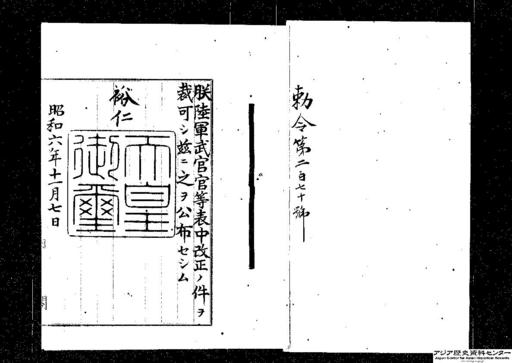 勅令第二百七十號
朕陸軍武官官等表中改正ノ件ヲ
裁可シ茲ニ之ヲ公布セシム
裕仁
天皇
御璽
昭和六年十一月七日
アジア歴史資料センター
Japan Center for Asian Historical Records